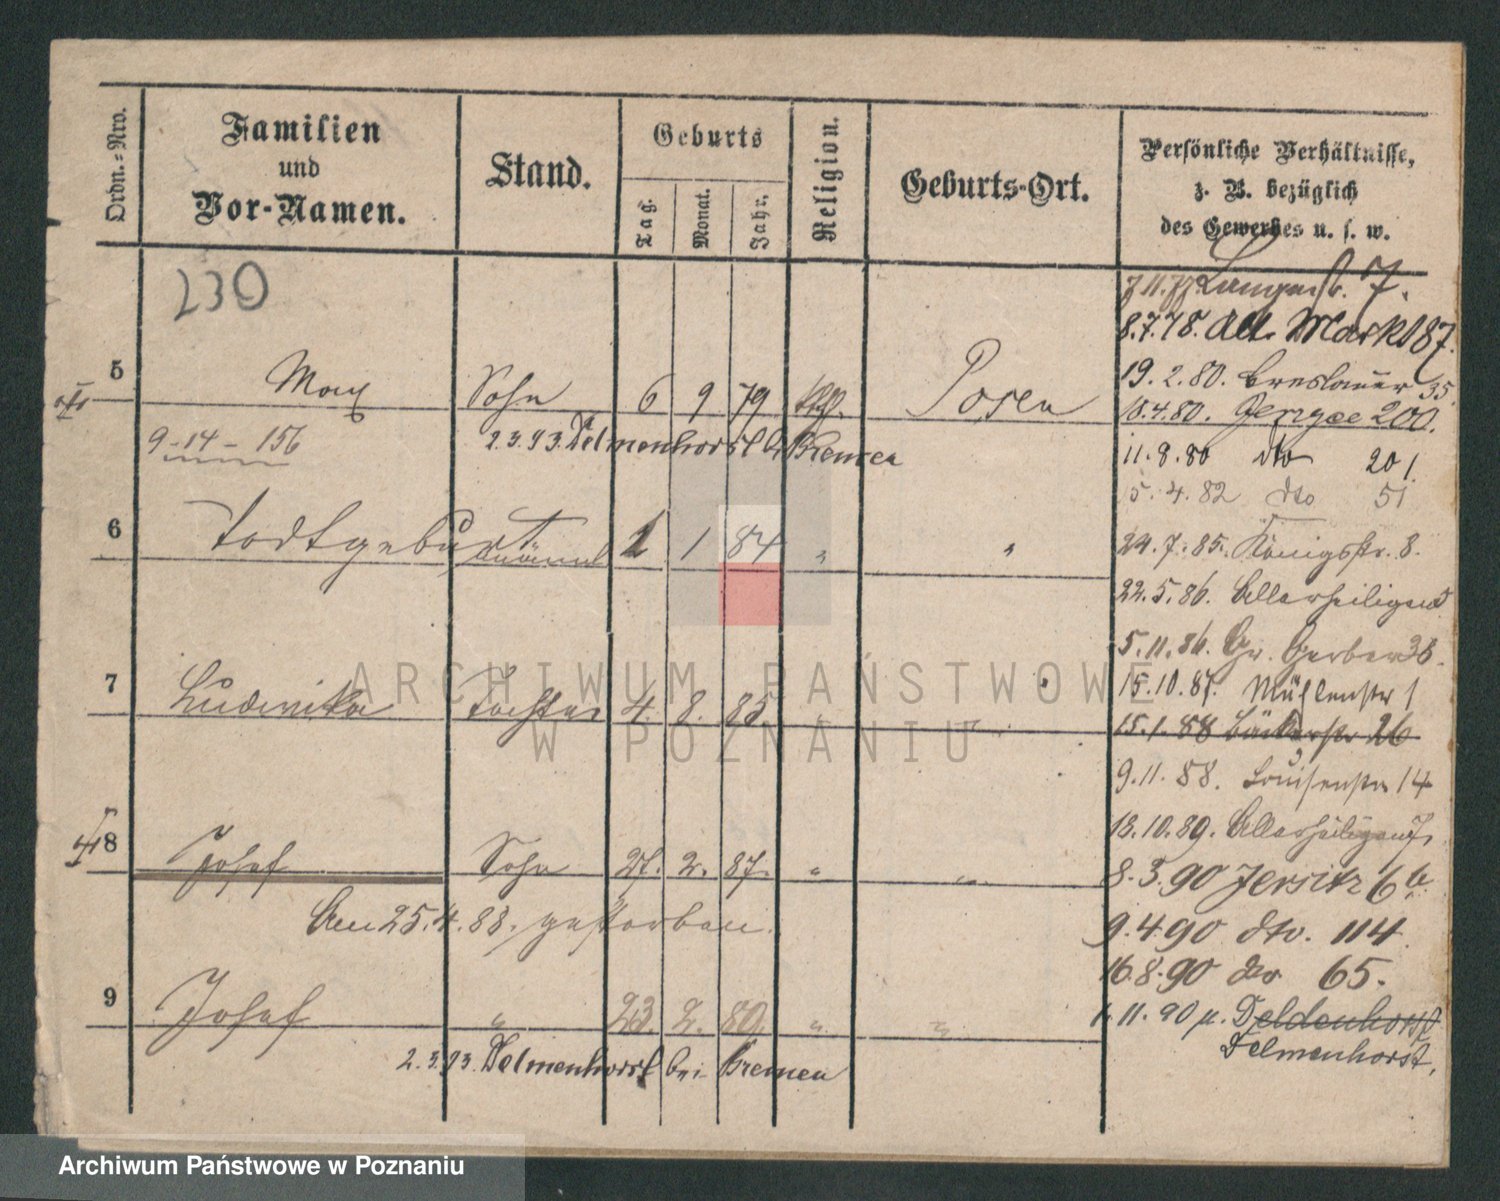 Ordn.=Nro.
Familien
und
Vor-Namen.
Stand.
Geburts
Tag.
Monat.
Jahr.
Religion.
Geburts-Ort.
Persönliche Verhältnisse,
z. B. bezüglich
des Gewerbes u. s. w.
230
7.
8.7.78. Alt. Markt 87.
19.2.80. Breslauer 35.
5 Max Sohn 6 9 79 Posen
18.4.80. 200.
9-14-156
2.3.93. Delmenhorst b. Bremen
11.8.80 dto 201.
5.4.82 dto 51
6 Todtgeburt 1 1 84 "
24.7.85. Königstr. 8.
22.5.86. Allerheiligen5
5.11.86. Gr. Gerber 36.
7 Ludwika Tochter 4. 8. 85.
15.10.87. Mühlenstr 1
15.1.88 Bäckerstr 26
9.11.88. Louisenstr 14
8 Josef Sohn 27. 2. 87. " "
13.10.89. Allerheiligen 7.
8.3.90 Jersitz 6b.
Am 25.4.88. gestorben.
9.4.90 dto. 114.
16.8.90 dto 65.
9 Josef " 23. 2. 89. " "
1.11.90 n. Deldenhorst
Delmenhorst.
2.3.93. Delmenhorst bei Bremen
ARCHIWUM PAŃSTWOWE
W POZNANIU
Archiwum Państwowe w Poznaniu